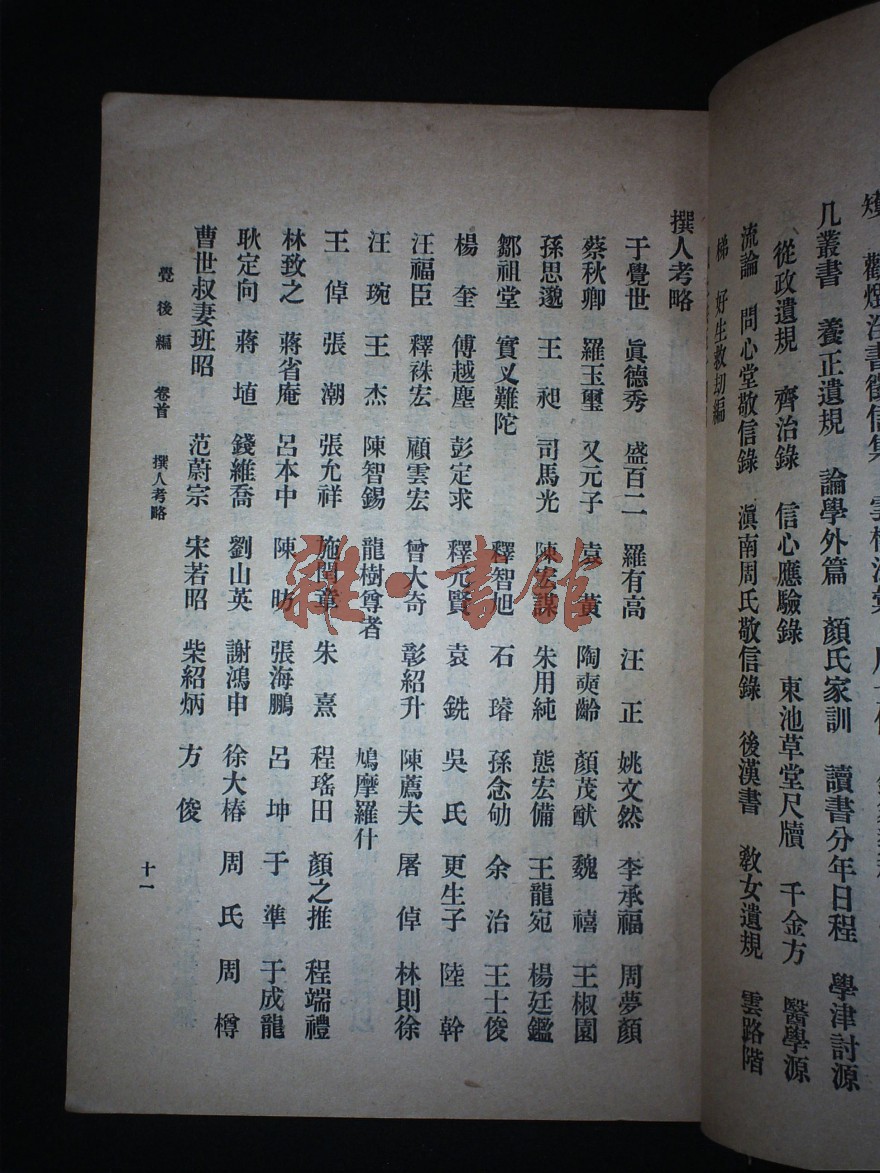 几叢書 養正遺規 論學外篇 顏氏家訓 讀書分年日程 學津討源
從政遺規 齊治錄 信心應驗錄 東池草堂尺牘 千金方 醫學源
流論 問心堂敬信錄 滇南周氏敬信錄 後漢書 敎女遺規 雲路階
梯 好生救劫編
撰人考略
于覺世 眞德秀 盛百二 羅有高 汪正 姚文然 李承福 周夢顏
蔡秋卿 羅玉璽 又元子 袁黃 陶奭齡 顏茂猷 魏禧 王椒園
孫思邈 王昶 司馬光 陳宏謀 朱用純 熊宏備 王龍宛 楊廷鑑
鄒祖堂 實叉難陀 釋智旭 石璿 孫念劬 余治 王士俊
楊奎 傅越塵 彭定求 釋元賢 袁銑 吳氏 更生子 陸幹
汪福臣 釋袾宏 顧雲宏 曾大奇 彰紹升 陳薦夫 屠倬 林則徐
汪琬 王杰 陳智錫 龍樹尊者 鳩摩羅什
王倬 張潮 張允祥 施閏章 朱熹 程瑤田 顏之推 程端禮
林致之 蔣省庵 呂本中 陳昉 張海鵬 呂坤 于準 于成龍
耿定向 蔣埴 錢維喬 劉山英 謝鴻申 徐大椿 周氏 周樽
曹世叔妻班昭 范蔚宗 宋若昭 柴紹炳 方俊
覺後編 卷首 撰人考略 十一
雜·書館